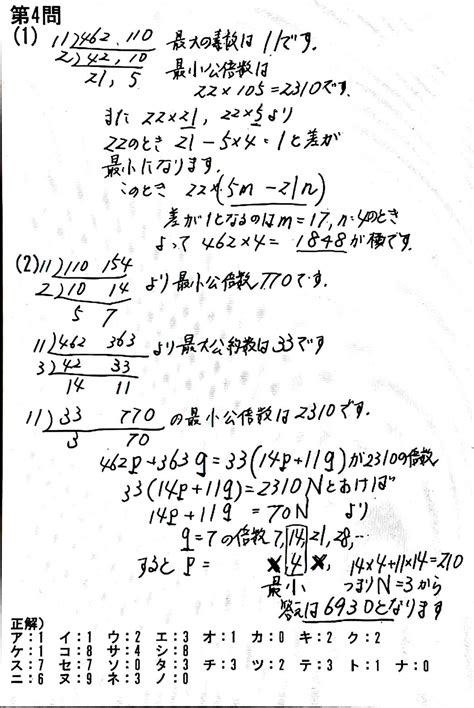 第4問
(1) 11)462, 110 最大の素数は11です.
2)42, 10 最小公倍数は
21, 5 22×105=2310です.
また 22×21, 22×5より
22のとき 21-5×4=1と差が
最小になります.
このとき 22×(5m-21n)
差が1となるのはm=17, n=4のとき
よって 462×4=1848が横です.
(2) 11)110 154
2)10 14 より最小公倍数770です.
5 7
11)462 363 より最大公約数は33です
3)42 33
14 11
11)33 770 の最小公倍数は2310です.
3 70
462p+363q=33(14p+11q)が2310の倍数
33(14p+11q)=2310Nとおけば
14p+11q=70N より
q=7の倍数 7, 14, 21, 28, …
するとp= × 4 ×, 14×4+11×14=210
最小 つまりN=3から
答えは6930となります
正解)
ア:1 イ:1 ウ:2 エ:3 オ:1 カ:0 キ:2 ク:2
ケ:1 コ:8 サ:4 シ:8
ス:7 セ:7 ソ:0 タ:3 チ:3 ツ:2 テ:3 ト:1 ナ:0
ニ:6 ヌ:9 ネ:3 ノ:0